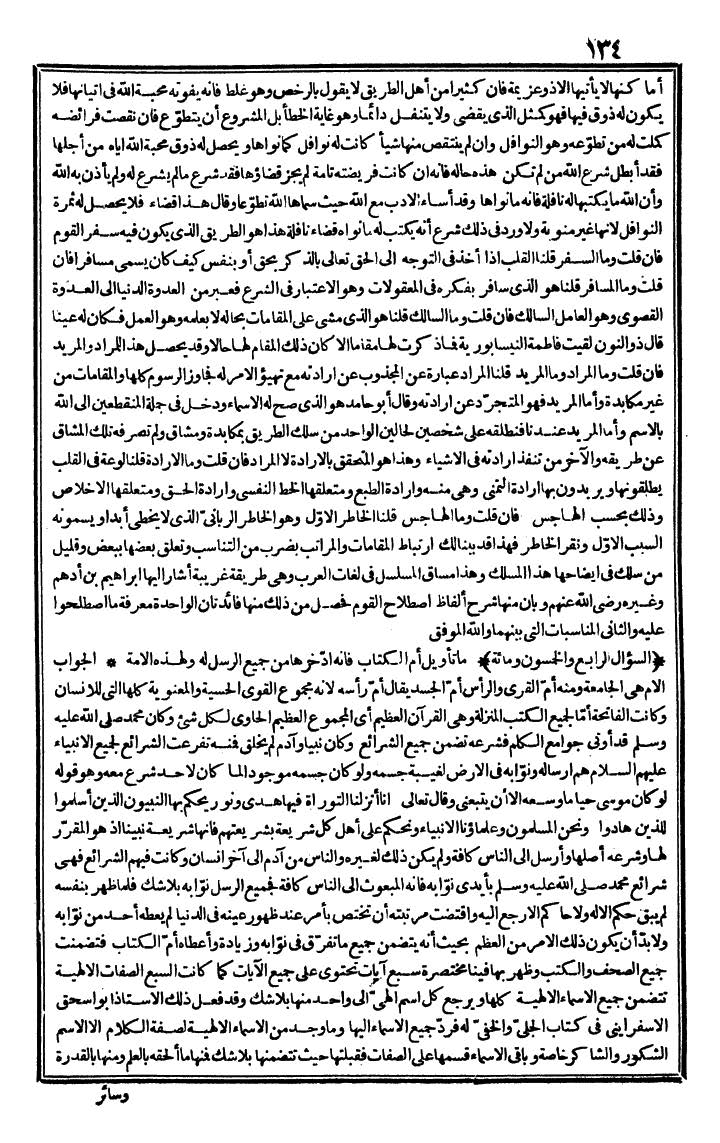 ١٣٤
أماكنها لا يأتيها الاذوعزيمة فان كثيرا من أهل الطريق لا يقول بالرخص وهو غلط فانه يفوته محبة الله فى اتيانها فلا
يكون له ذوق فيها فهو كمثل الذى يقضى ولا يتنفل دائما وهو غاية الخطأ بل المشروع أن يتطوّع فان نقصت فرائضه
كملت له من تطوّعه وهو النوافل وان لم ينتقص منها شيأ كانت له نوافل كما نواها ويحصل له ذوق محبة الله اياه من أجلها
فقد أبطل شرع الله من لم تكن هذه حاله فانه ان كانت فريضته تامة لم يجز قضاؤها فقد شرع مالم يشرع له ولم يأذن به الله
وأن الله ما يكتبها له نافلة فانه ما نواها وقد أساء الادب مع الله حيث سماها الله تطوّعا وقال هذا قضاء فلا يحصل له ثمرة
النوافل لانها غير منوية ولا ورد فى ذلك شرع أنه يكتب له ما نواه قضاء نافلة هذا هو الطريق الذى يكون فيه سفر القوم
فان قلت وما السفر قلنا القلب اذا أخذ فى التوجه الى الحق تعالى بالذكر بحق أو بنفس كيف كان يسمى مسافرا فان
قلت وما المسافر قلنا هو الذى سافر بفكره فى المعقولات وهو الاعتبار فى الشرع فعبر من العدوة الدنيا الى العدوة
القصوى وهو العامل السالك فان قلت وما السالك قلنا هو الذى مشى على المقامات بحاله لا بعلمه وهو العمل فكان له عينا
قال ذو النون لقيت فاطمة النيسابورية فماذكرت لها مقاما الا كان ذلك المقام لها حالا وقد يحصل هذا للمراد والمريد
فان قلت وما المراد وما المريد قلنا المراد عبارة عن المجذوب عن ارادته مع تهيؤ الامر له فجاوز الرسوم كلها والمقامات من
غير مكابدة وأما المريد فهو المتجرّد عن ارادته وقال أبو حامد هو الذى صح له الاسماء ودخل فى جلة المنقطعين الى الله
بالاسم وأما المريد عندنا فنطلقه على شخصين لحالين الواحد من سلك الطريق بمكابدة ومشاق ولم تصرفه تلك المشاق
عن طريقه والآخر من تنفذ ارادته فى الاشياء وهذا هو المتحقق بالارادة لا المراد فان قلت وما الارادة قلنا لوعة فى القلب
يطلقونها ويريدون بها ارادة التمنى وهى منه وارادة الطبع ومتعلقها الحظ النفسى وارادة الحق ومتعلقها الاخلاص
وذلك بحسب الهاجس فان قلت وما الهاجس قلنا الخاطر الاوّل وهو الخاطر الربانىّ الذى لا يخطى أبدا ويسمونه
السبب الاوّل ونقر الخاطر فهذا قد بينا لك ارتباط المقامات والمراتب بضرب من التناسب وتعلق بعضها ببعض وقليل
من سلك فى ايضاحها هذا المسلك وهذا مساق المسلسل فى لغات العرب وهى طريقة غريبة أشار اليها ابراهيم بن أدهم
وغيره رضى الله عنهم وبان منها شرح ألفاظ اصطلاح القوم فحصل من ذلك منها فائدتان الواحدة معرفة ما اصطلحوا
عليه والثانى المناسبات التى بينهما والله الموفق
﴿السؤال الرابع والخمسون ومائة﴾ ما تأويل أم الكتاب فانه ادّخرها من جميع الرسل له ولهذه الامة * الجواب
الام هى الجامعة ومنه أمّ القرى والرأس أمّ الجسد يقال أمّ رأسه لانه مجموع القوى الحسية والمعنوية كلها التى للانسان
وكانت الفاتحة أمّا لجميع الكتب المنزلة وهى القرآن العظيم أى المجموع العظيم الحاوى لكل شئ وكان محمد صلى الله عليه
وسلم قد أوتى جوامع الكلم فشرعه تضمن جميع الشرائع وكان نبيا وآدم لم يخلق فمنه تفرعت الشرائع لجميع الانبياء
عليهم السلام هم ارساله ونوّابه فى الارض لغيبة جسمه ولو كان جسمه موجود الما كان لاحد شرع معه وهو قوله
لو كان موسى حيا ما وسعه الا أن يتبعنى وقال تعالى انا أنزلنا التوراة فيها هدى ونور يحكم بها النبيون الذين أسلموا
للذين هادوا ونحن المسلمون وعلماؤنا الانبياء ونحكم على أهل كل شريعة بشريعتهم فانها شريعة نبينا اذ هو المقرّر
لها وشرعه أصلها وأرسل الى الناس كافة ولم يكن ذلك لغيره والناس من آدم الى آخر انسان وكانت فيهم الشرائع فهى
شرائع محمد صلى الله عليه وسلم بأيدى نوّابه فانه المبعوث الى الناس كافة فجميع الرسل نوّابه بلا شك فلما ظهر بنفسه
لم يبق حكم الا له ولا حاكم الا رجع اليه واقتضت مرتبته أن تختص بأمر عند ظهور عينه فى الدنيا لم يعطه أحد من نوّابه
ولا بدّ أن يكون ذلك الامر من العظم بحيث أنه يتضمن جميع ما تفرّق فى نوّابه وزيادة وأعطاه أمّ الكتاب فتضمنت
جميع الصحف والكتب وظهر بها فينا مختصرة سبع آيات تحتوى على جميع الآيات كما كانت السبع الصفات الالهية
تتضمن جميع الاسماء الالهية كلها ويرجع كل اسم الهىّ الى واحد منها بلا شك وقد فعل ذلك الاستاذ أبو اسحق
الاسفراينى فى كتاب الجلىّ والخفىّ له فردّ جميع الاسماء اليها وما وجد من الاسماء الالهية لصفة الكلام الا الاسم
الشكور والشاكر خاصة وباقى الاسماء قسمها على الصفات فقبلتها حيث تتضمنها بلا شك فنها ما ألحقه بالعلم ومنها بالقدرة
وسائر